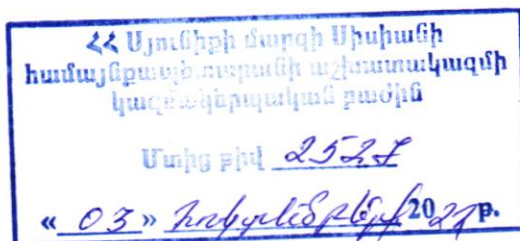 ՀՀ Սյունիքի մարզի Սիսիանի
համայնքապետարանի աշխատակազմի
կազմակերպական բաժին
Մտից թիվ 2527
« 03 » հոկտեմբերի 20 թ.